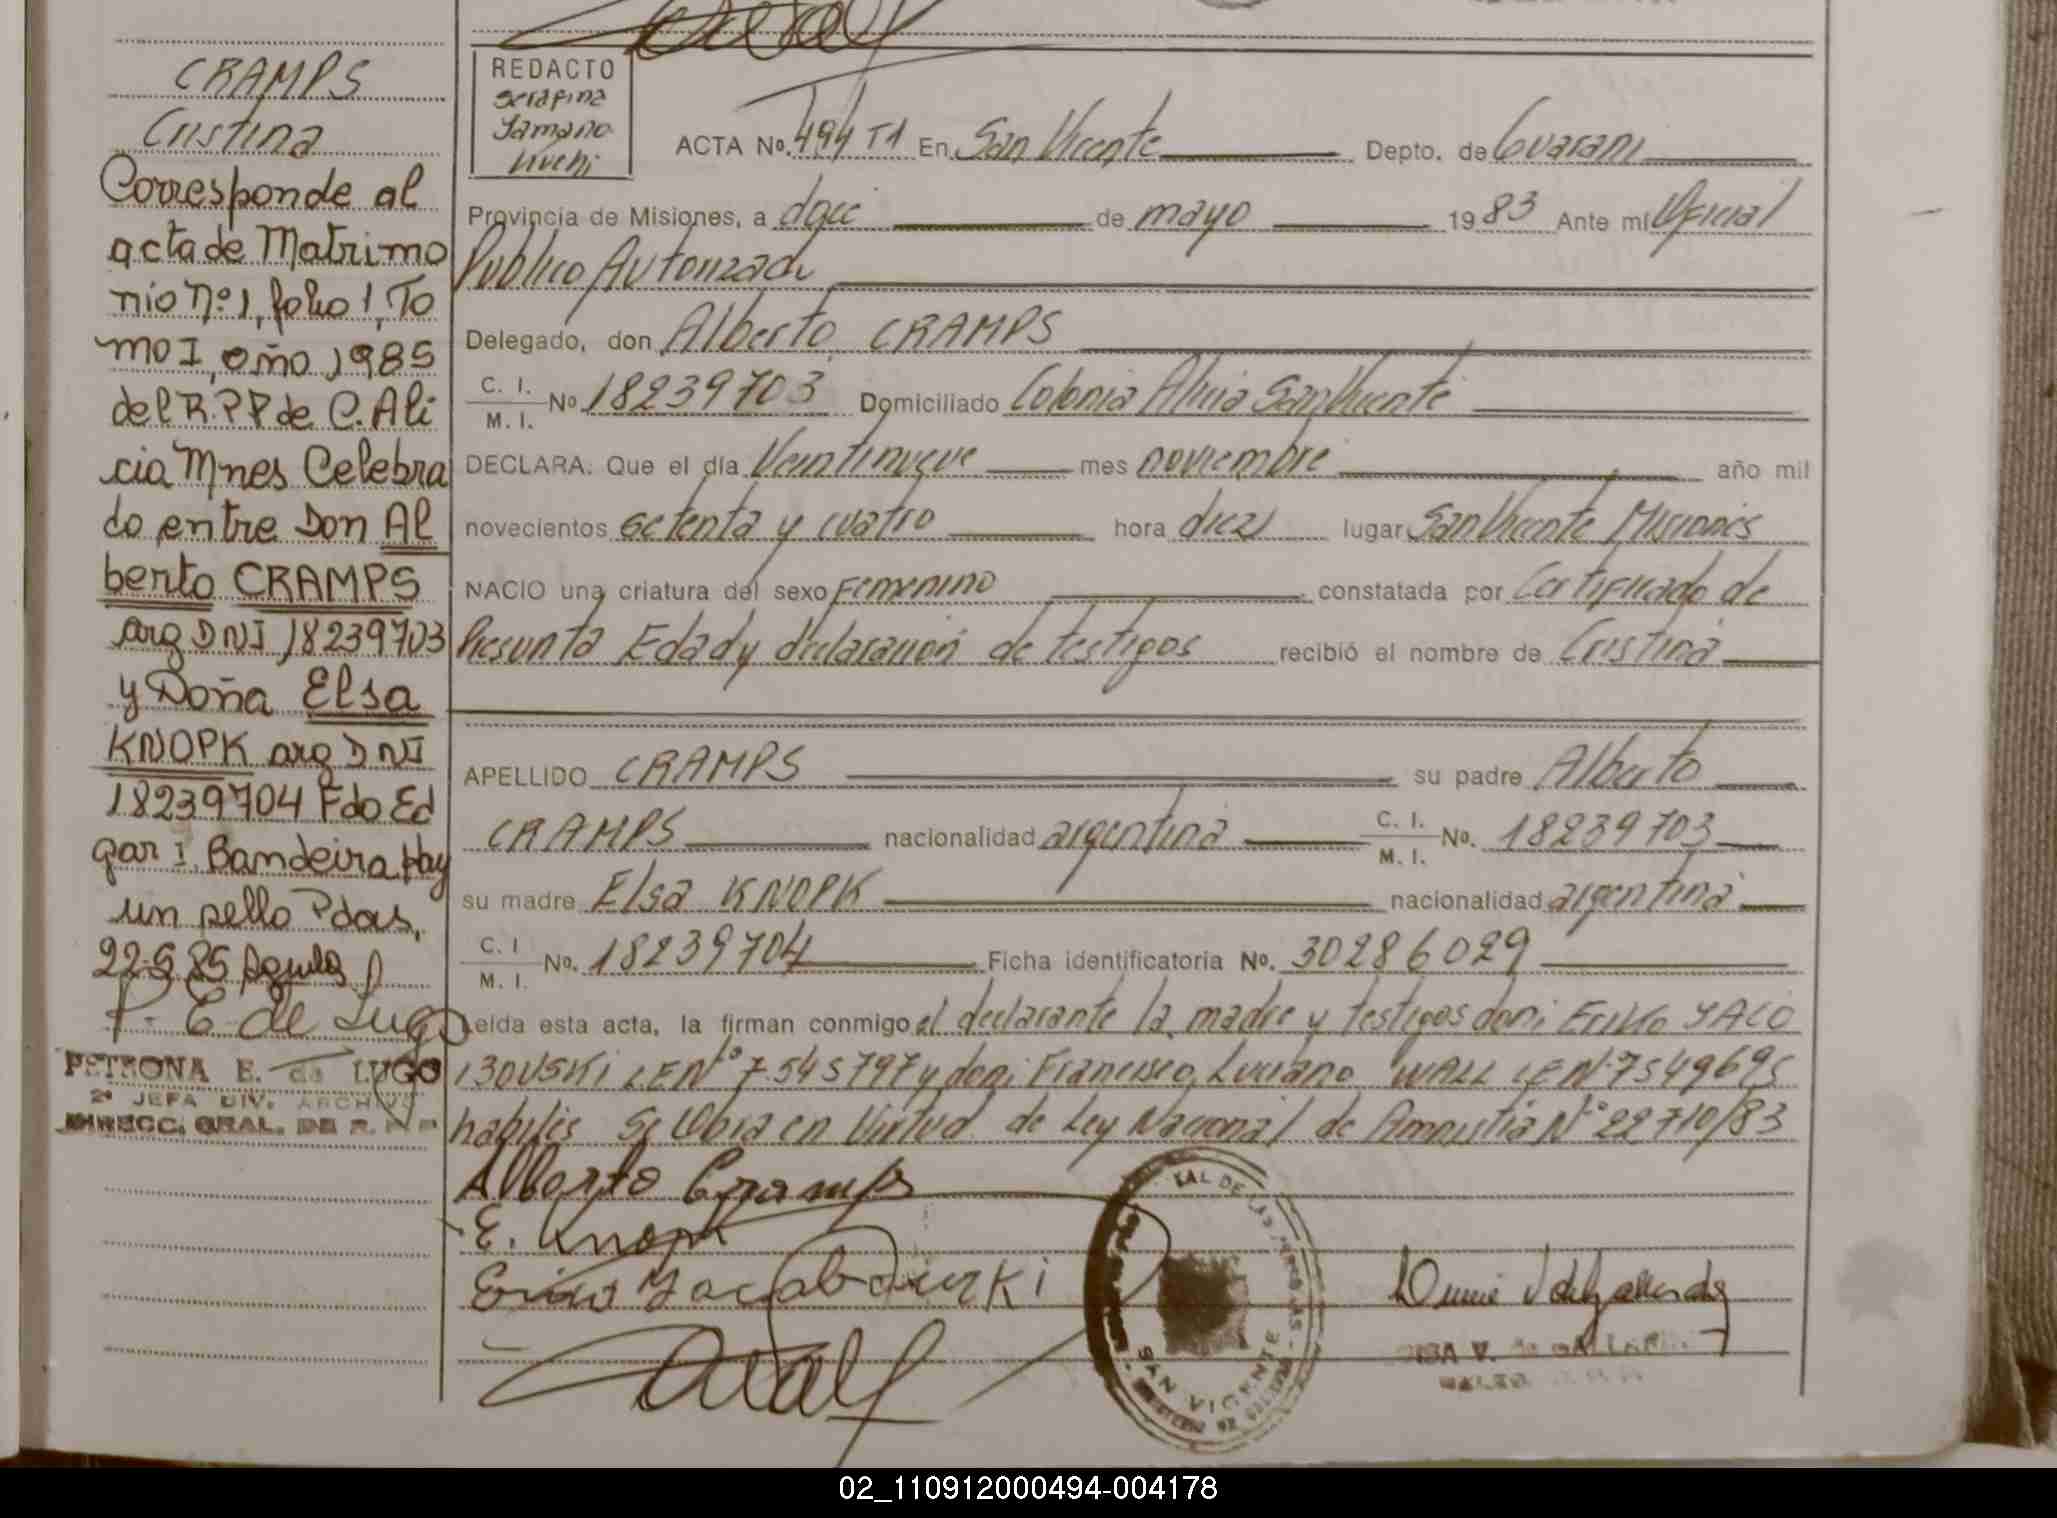 CRAMPS
Cristina
Corresponde al
acta de Matrimo
nio nº 1, folio 1, To
mo I, año 1985
del R.P.P de C. Ali
cia Mnes Celebra
do entre Don Al
berto CRAMPS
arg DNI 18239703
y Doña Elsa
KNOPK arg DNI
18239704 Fdo Ed
gar I. Bandeira Hay
un sello Pdas,
22-5-85
P. E de Lugo
PETRONA E. de LUGO
2ª JEFA DIV. ARCHIVO
DIRECC. GRAL. DE R.
REDACTO
Serafina
ACTA No. 494 T1 En San Vicente Depto. de Guarani
Provincia de Misiones, a doce de mayo 1983 Ante mí Oficial
Publico Autorizado
Delegado, don Alberto CRAMPS
C. I. / M. I. No 18239703 Domiciliado Colonia Alicia San Vicente
DECLARA: Que el día Veintinueve mes noviembre año mil
novecientos setenta y cuatro hora diez lugar San Vicente Misiones
NACIO una criatura del sexo Femenino constatada por Certificado de
Presunta Edad y declaracion de testigos recibió el nombre de Cristina
APELLIDO CRAMPS su padre Alberto
CRAMPS nacionalidad argentina C. I. / M. I. No. 18239703
su madre Elsa KNOPK nacionalidad argentina
C. I / M. I. No. 18239704 Ficha identificatoria No. 30286029
Leída esta acta, la firman conmigo el declarante la madre y testigos don: Eriko YACO
BOUSKI LE Nº 7.545797 y don: Francisco Luciano WALL LE Nº 7549695
habiles Se Obra en Virtud de Ley Nacional de Amnistia Nº 22710/83
Alberto Cramps
E. Knopk
SAN VICENTE
02_110912000494-004178